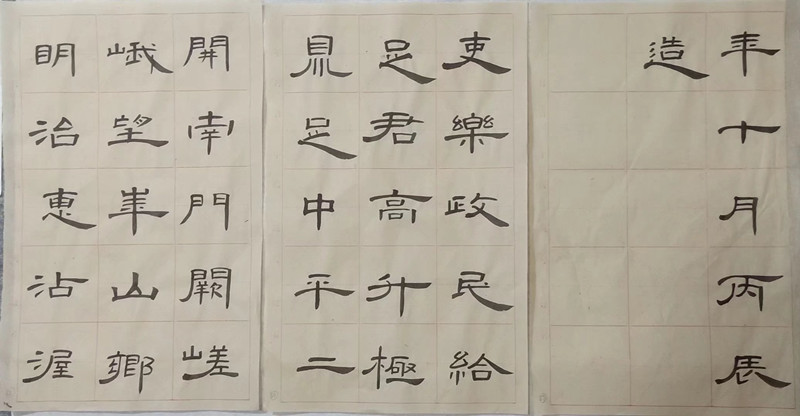 開南門闕嵯
峨望華山鄉
明治惠沾渥
吏樂政民給
足君高升極
鼎足中平二
年十月丙辰
造